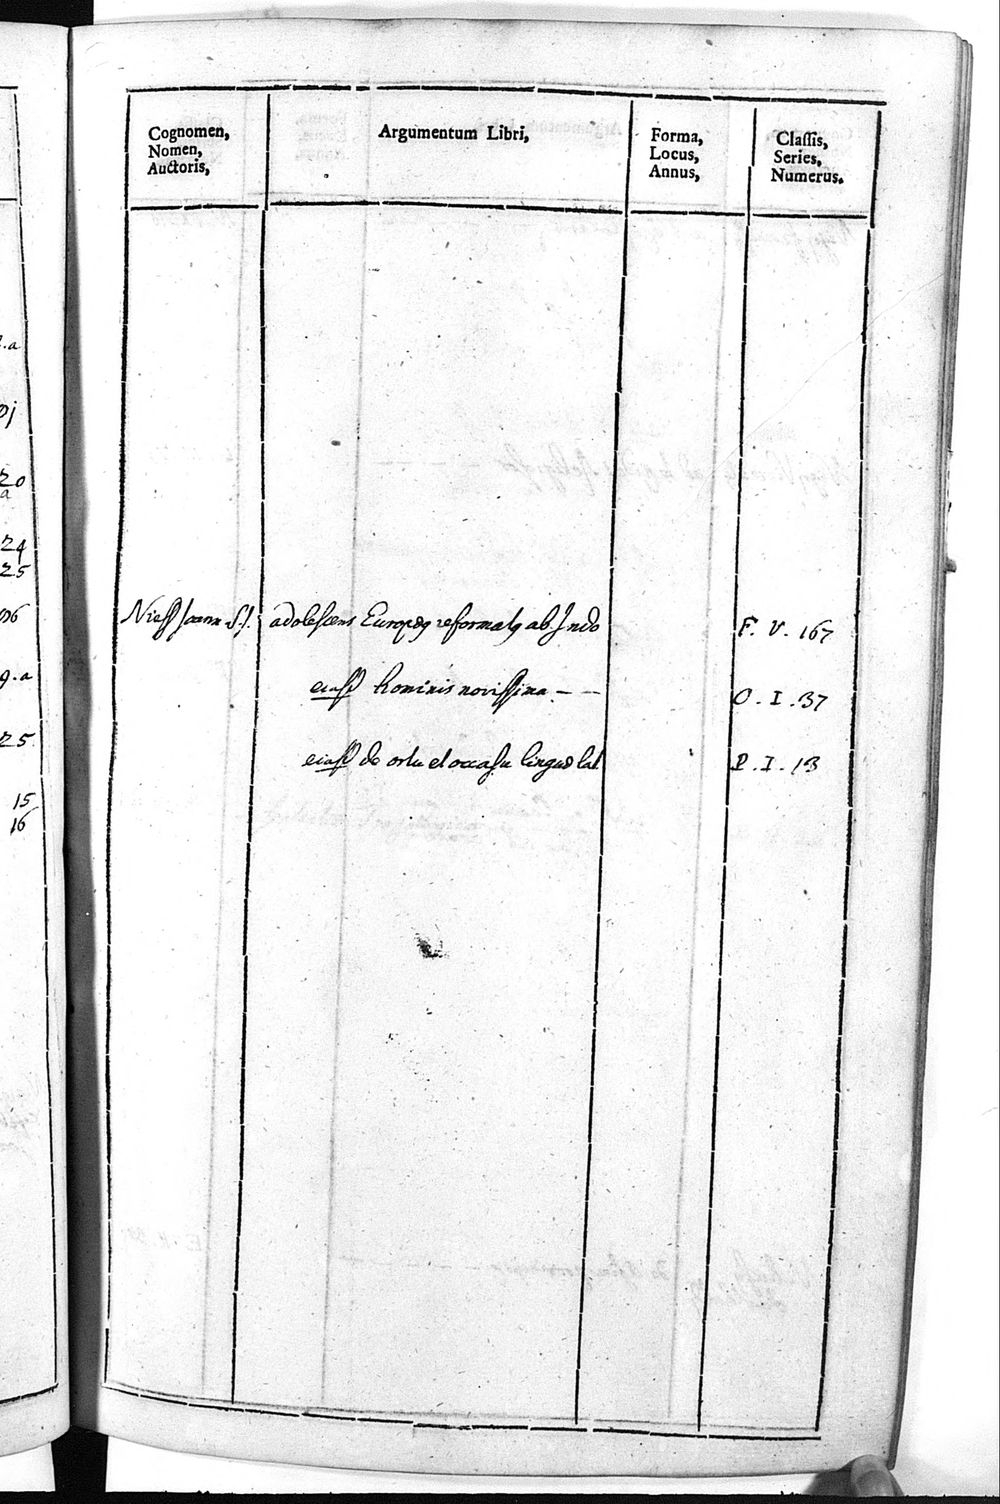 .a
20
a
24
25
g.a
25
15
16
Cognomen,
Nomen,
Auctoris,
Argumentum Libri,
Forma,
Locus,
Annus,
Claſſis,
Series,
Numerus.
Nieſſ Joann S.J. adoleſcens Europæq reformatq ab Indo F. V. 167
eiuſd hominis noviſſima - - O. I. 37
eiuſd de ortu et occaſu linguæ lat P. I. 13